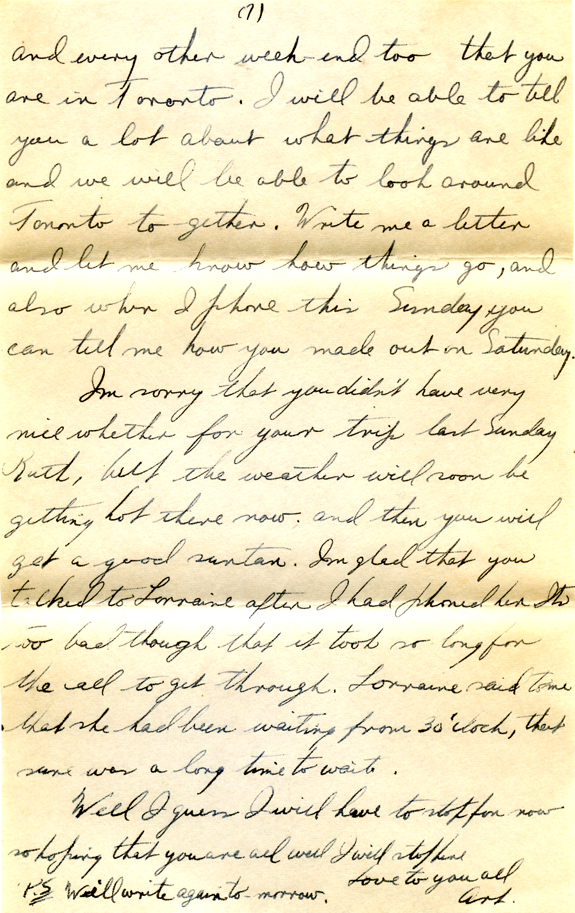 (7)
and every other week-end too that you
are in Toronto. I will be able to tell
you a lot about what things are like
and we will be able to look around
Toronto to-gether. Write me a letter
and let me know how things go, and
also when I phone this Sunday you
can tell me how you made out on Saturday.
Im sorry that you didn't have very
nice whether for your trip last Sunday
Ruth, but the weather will soon be
getting hot there now. and then you will
get a good suntan. Im glad that you
talked to Lorraine after I had phoned her Its
too bad though that it took so long for
the call to get through. Lorraine said to me
that she had been waiting from 3 O'clock, that
sure was a long time to wait.
Well I guess I will have to stop for now
so hoping that you are all well I will stop here
Love to you all
P.S Will write again to-morrow. Art.